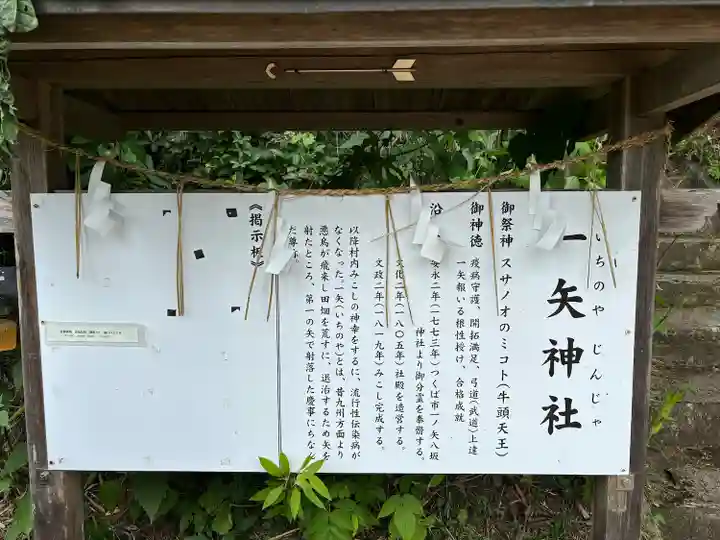 一矢神社
いちのや じんじゃ
御祭神 スサノオのミコト(牛頭天王)
御神徳 疫病守護、開拓満足、弓道(武道)上達
一矢報いる根性授け、合格成就
沿
安永二年(一七七三年)つくば市一ノ矢八坂
神社より御分霊を奉齋する。
文化二年(一八〇五年)社殿を造営する。
文政二年(一八一九年)みこし完成する。
以降村内みこしの神幸をするに、流行性伝染病が
なくなった。一矢(いちのや)とは、昔九州方面より
悪鳥が飛来し田畑を荒すに、退治するため矢を
射たところ、第一の矢で射落した慶事にちなん
だ尊称。
《掲示板》